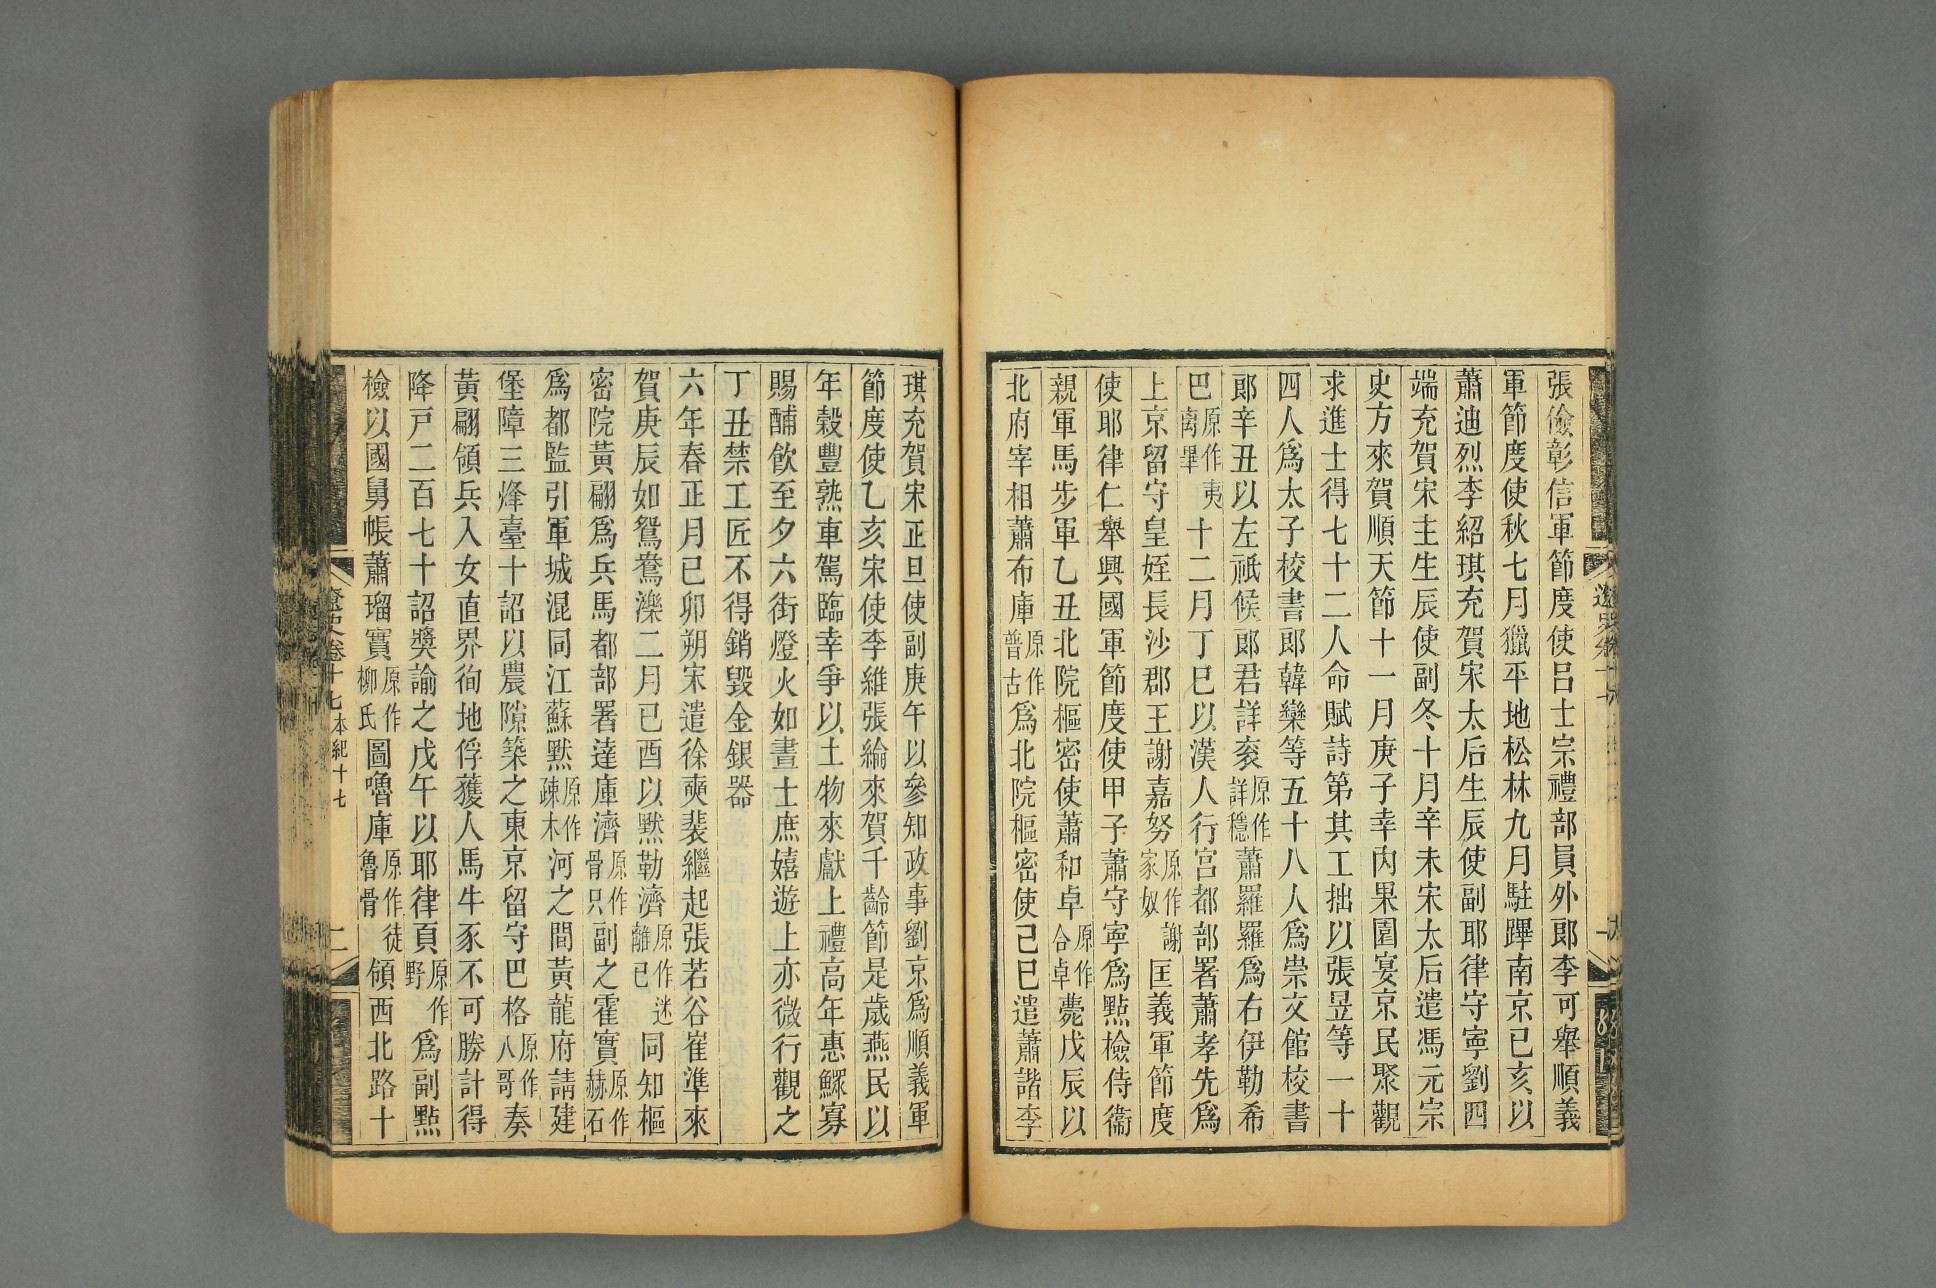 張儉彰信軍節度使呂士宗禮部員外郎李可舉順義
軍節度使秋七月獵平地松林九月駐蹕南京己亥以
蕭迪烈李紹琪充賀宋太后生辰使副耶律守寧劉四
端充賀宋主生辰使副冬十月辛未宋太后遣馮元宗
史方來賀順天節十一月庚子幸內果園宴京民聚觀
求進士得七十二人命賦詩第其工拙以張昱等一十
四人爲太子校書郎韓欒等五十八人爲崇文館校書
郎辛丑以左祇候郎君詳袞原作詳穩蕭羅羅爲右伊勒希
巴原作夷离畢十二月丁巳以漢人行宮都部署蕭孝先爲
上京留守皇姪長沙郡王謝嘉努原作謝家奴匡義軍節度
使耶律仁舉興國軍節度使甲子蕭守寧爲點檢侍衞
親軍馬步軍乙丑北院樞密使蕭和卓原作合卓薨戊辰以
北府宰相蕭布庫原作普古爲北院樞密使己巳遣蕭諧李
琪充賀宋正旦使副庚午以參知政事劉京爲順義軍
節度使乙亥宋使李維張綸來賀千齡節是歲燕民以
年穀豐熟車駕臨幸爭以土物來獻上禮高年惠鰥寡
賜酺飮至夕六街燈火如晝士庶嬉遊上亦微行觀之
丁丑禁工匠不得銷毀金銀器
六年春正月己卯朔宋遣徐奭裴繼起張若谷崔準來
賀庚辰如鴛鴦濼二月己酉以默勒濟原作迷離已同知樞
密院黃翩爲兵馬都部署達庫濟原作骨只副之霍實原作赫石
爲都監引軍城混同江蘇默原作疎木河之間黃龍府請建
堡障三烽臺十詔以農隙築之東京留守巴格原作八哥奏
黃翩領兵入女直界徇地俘獲人馬牛豕不可勝計得
降戸二百七十詔獎諭之戊午以耶律頁原作野爲副點
檢以國舅帳蕭瑠寳原作柳氏圖嚕庫原作徒魯骨領西北路十
遼史卷十七 本紀十七 二